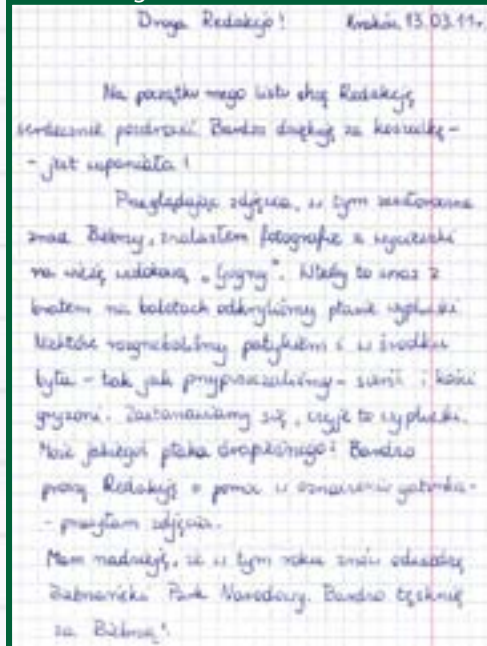 Droga Redakcjo! Kraków, 13.03.11r.
Na początku mego listu chcę Redakcję
serdecznie pozdrowić. Bardzo dziękuję za koszulkę -
- jest wspaniała!
Przeglądając zdjęcia, w tym
znad Biebrzy, znalazłem fotografie z wycieczki
na wieżę widokową „Gugny". Wtedy to wraz z
bratem na bobrtach odkryliśmy ptasie wypluwki
Niektóre rozgrzebaliśmy patykiem i w środku
była - tak jak przypuszczaliśmy - sierść i kości
gryzoni. Zastanawiamy się, czyje to wypluwki.
Może jakiegoś ptaka drapieżnego? Bardzo
proszę Redakcję o pomoc w oznaczeniu gatunku -
- przesyłam zdjęcia.
Mam nadzieję, że w tym roku znów odwiedzę
Biebrzański Park Narodowy. Bardzo tęsknię
za Biebrzą!